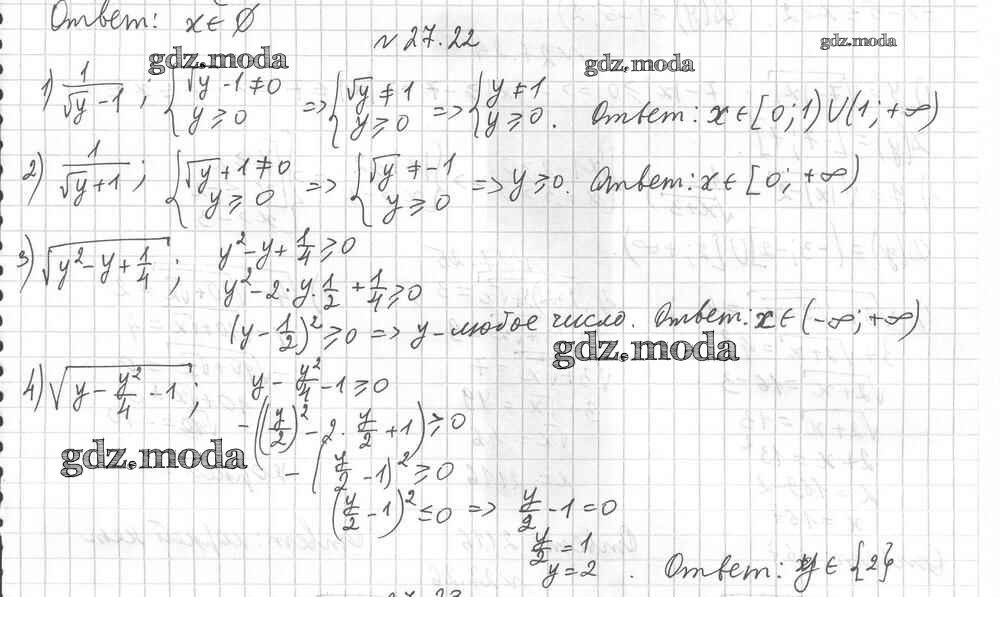 Ответ: x ∈ ∅
№ 27.22
gdz.moda gdz.moda gdz.moda
1) 1/(√y - 1); {√y - 1 ≠ 0, y ≥ 0 => {√y ≠ 1, y ≥ 0 => {y ≠ 1, y ≥ 0. Ответ: x ∈ [0; 1) ∪ (1; +∞)
2) 1/(√y + 1); {√y + 1 ≠ 0, y ≥ 0 => {√y ≠ -1, y ≥ 0 => y ≥ 0. Ответ: x ∈ [0; +∞)
3) √(y² - y + 1/4); y² - y + 1/4 ≥ 0
y² - 2·y·1/2 + 1/4 ≥ 0
(y - 1/2)² ≥ 0 => y - любое число. Ответ: x ∈ (-∞; +∞)
gdz.moda
4) √(y - y²/4 - 1); y - y²/4 - 1 ≥ 0
-((y/2)² - 2·y/2 + 1) ≥ 0
gdz.moda
-(y/2 - 1)² ≥ 0
(y/2 - 1)² ≤ 0 => y/2 - 1 = 0
y/2 = 1
y = 2. Ответ: y ∈ {2}